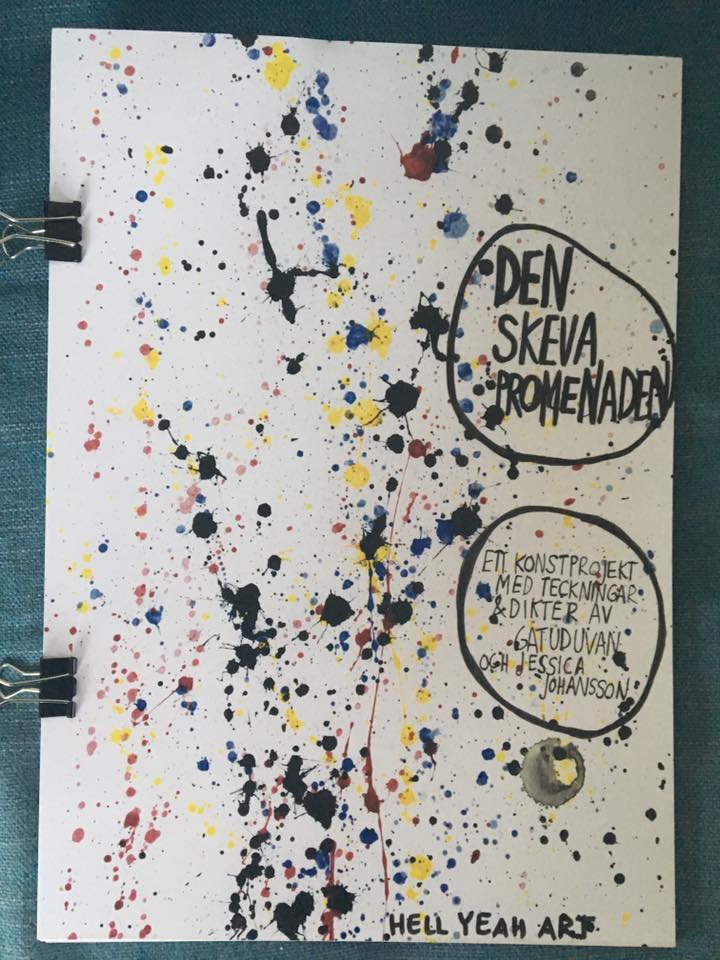 DEN
SKEVA
PROMENADEN
ETT KONSTPROJEKT
MED TECKNINGAR
& DIKTER AV
GATUDUVAN
OCH JESSICA
JOHANSSON
HELL YEAH ART